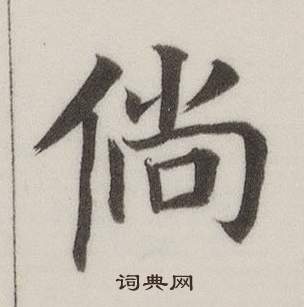 倘
词典网